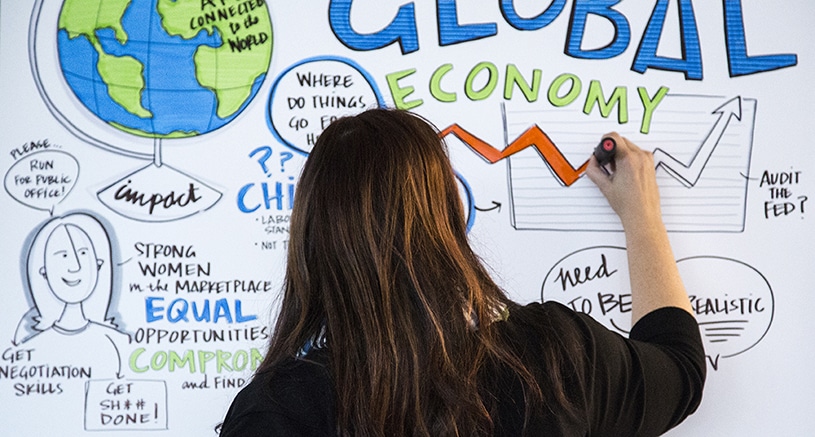 CONNECTED
to the
WORLD
GLOBAL
ECONOMY
WHERE
DO THINGS
GO
PLEASE...
RUN
FOR PUBLIC
OFFICE!
impact
??
AUDIT
THE
FED?
STRONG
WOMEN
in the MARKETPLACE
EQUAL
OPPORTUNITIES
and
GET
NEGOTIATION
SKILLS
GET
SH#*#
DONE!
need
TO BE
REALISTIC